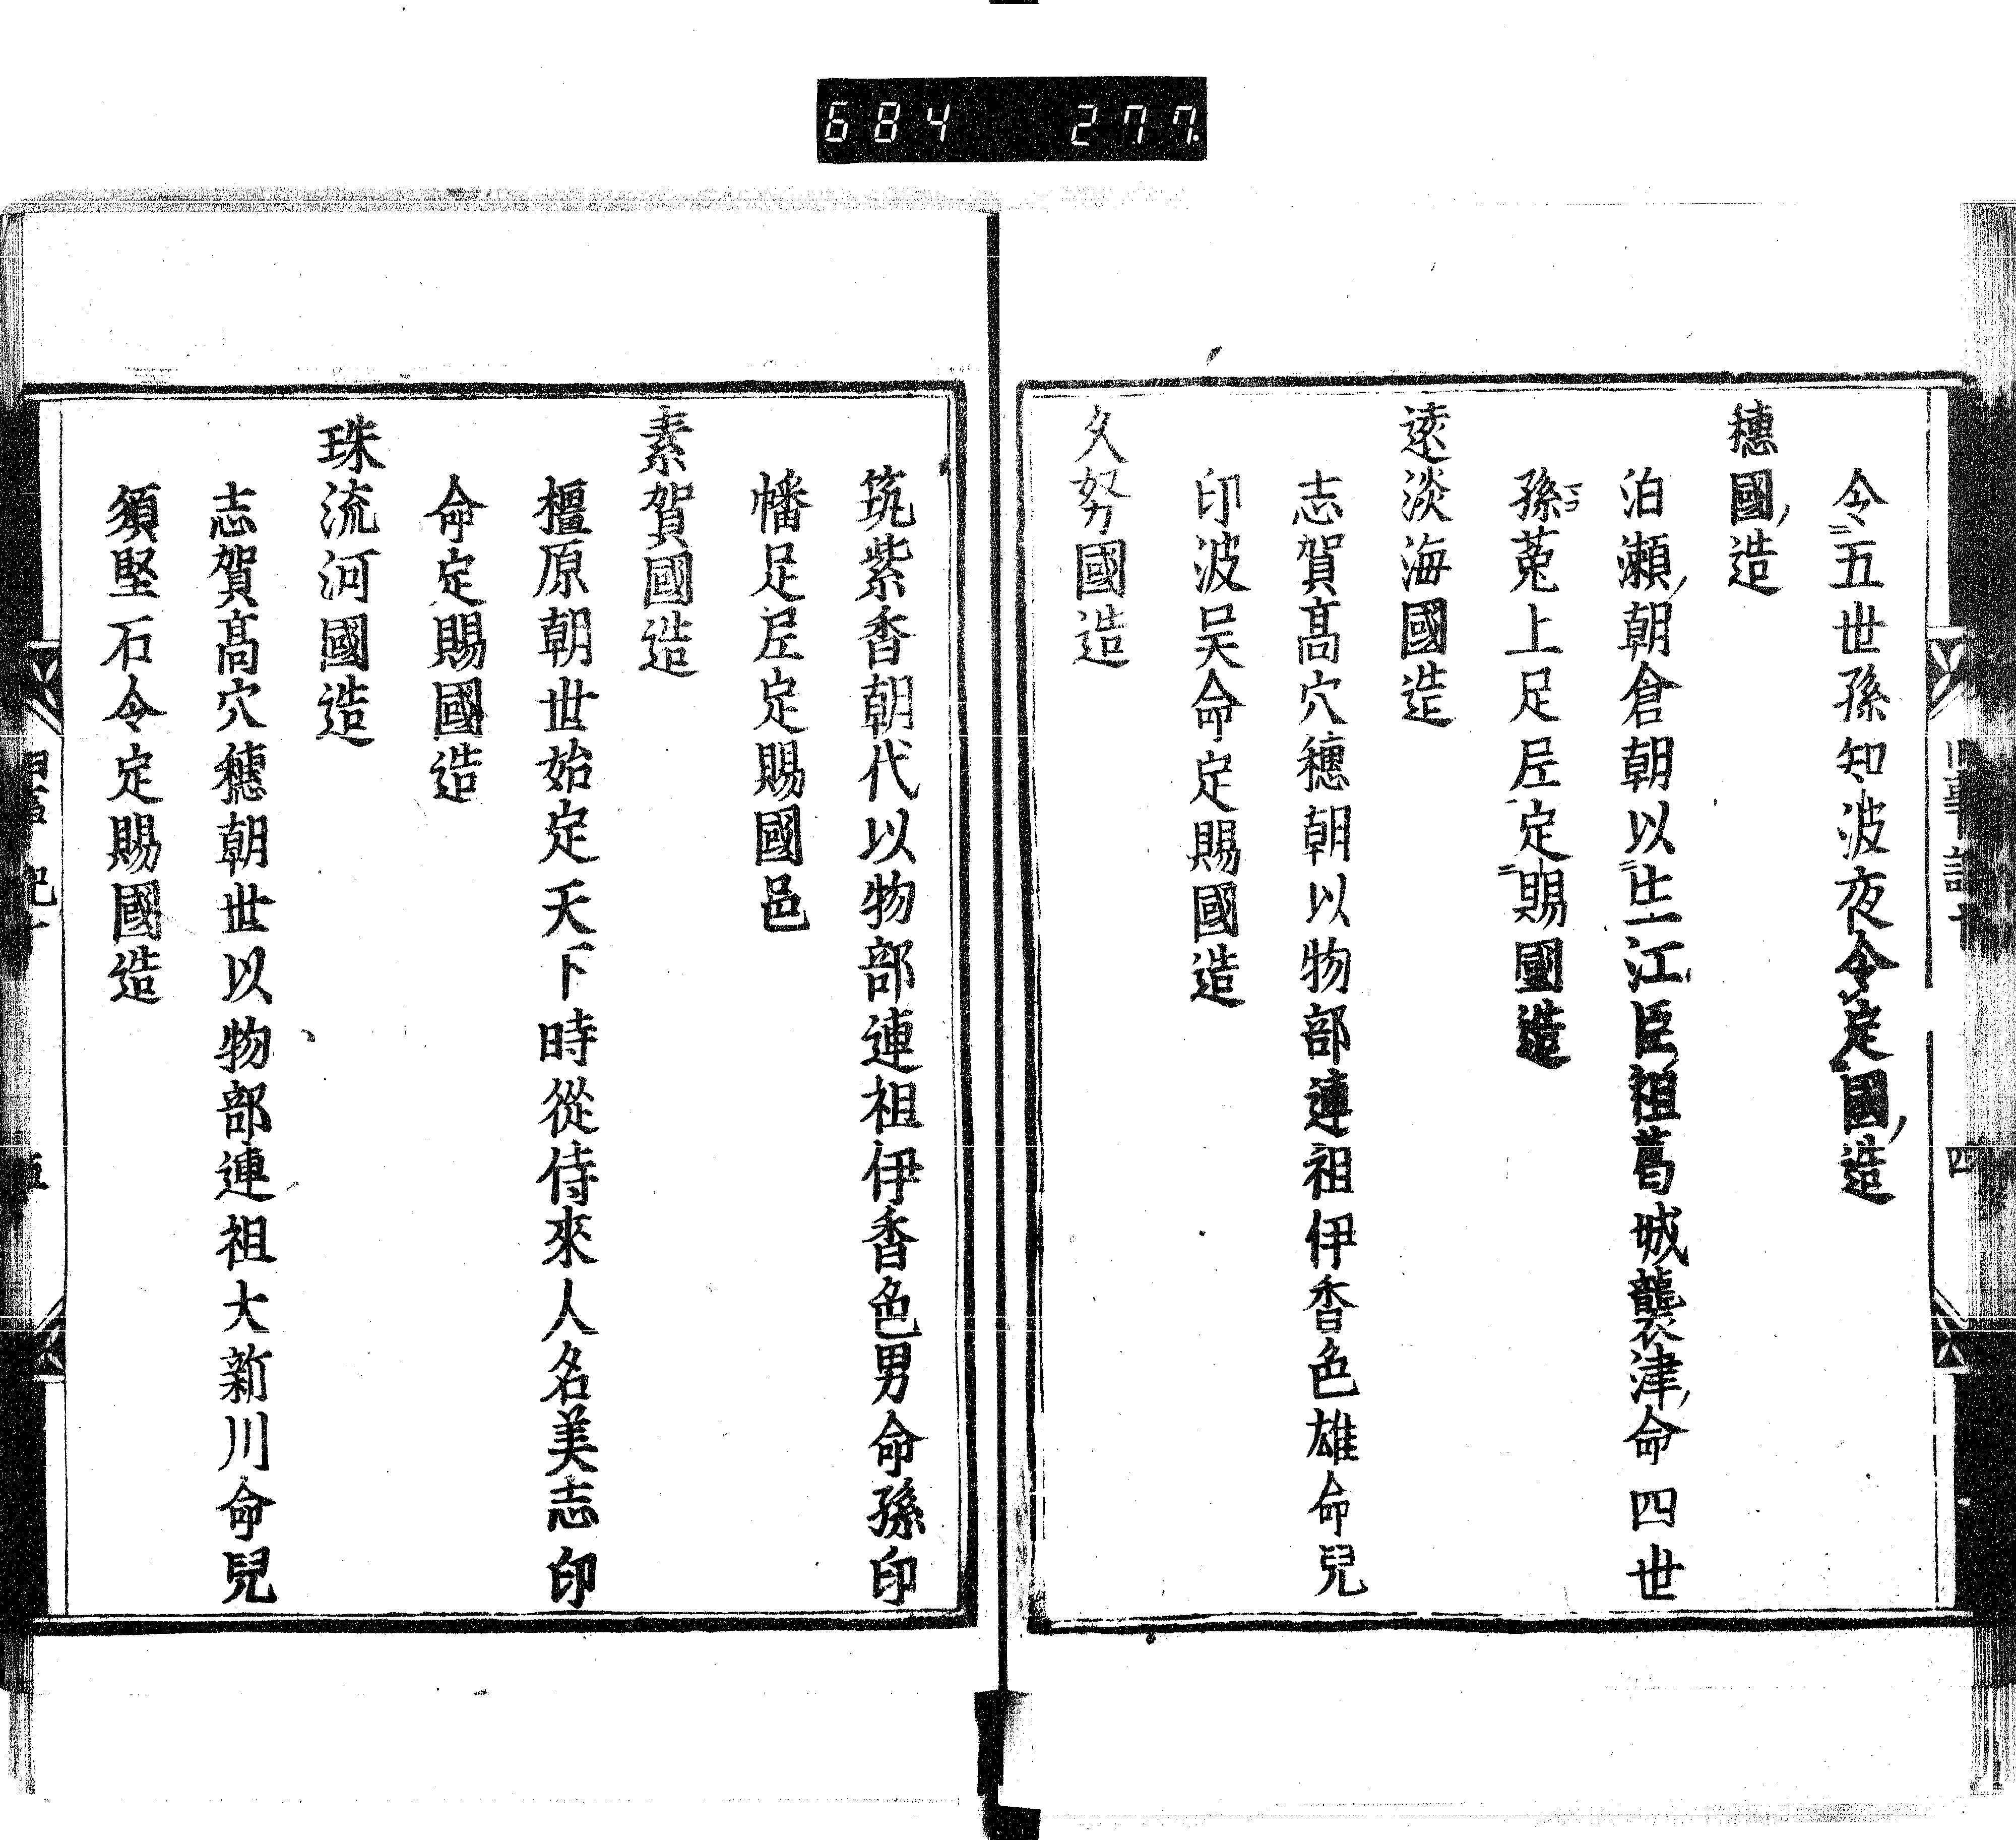 684 277
令五世孫知波夜令定國造
穗國造
泊瀬朝倉朝以生江臣祖葛城襲津命四世
孫菟上足𡰱定賜國造
遠淡海國造
志賀髙穴穗朝以物部連祖伊香色雄命兒
印波吴命定賜國造
久努國造
筑紫香朝代以物部連祖伊香色男命孫印
幡足𡰱定賜國邑
素賀國造
橿原朝世始定天下時從侍來人名美志印
命定賜國造
珠流河國造
志賀髙穴穗朝世以物部連祖大新川命兒
須堅石令定賜國造